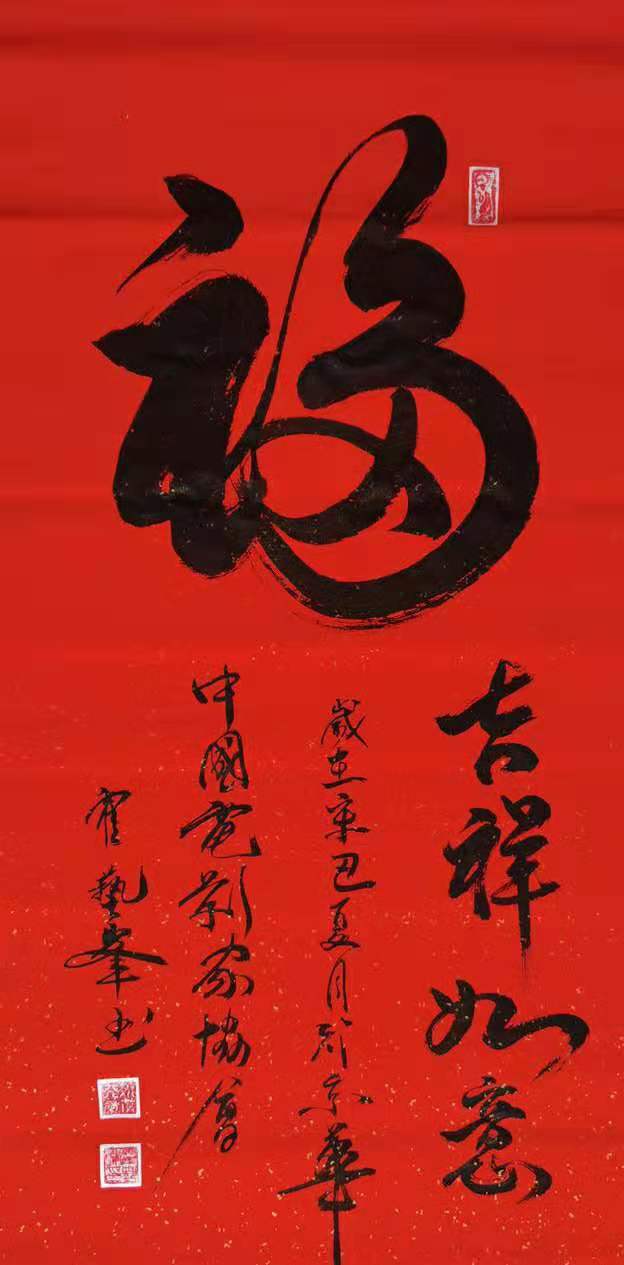 福
吉祥如意
歲在辛丑夏月於京華
中國電影家協會
霍藝峯书